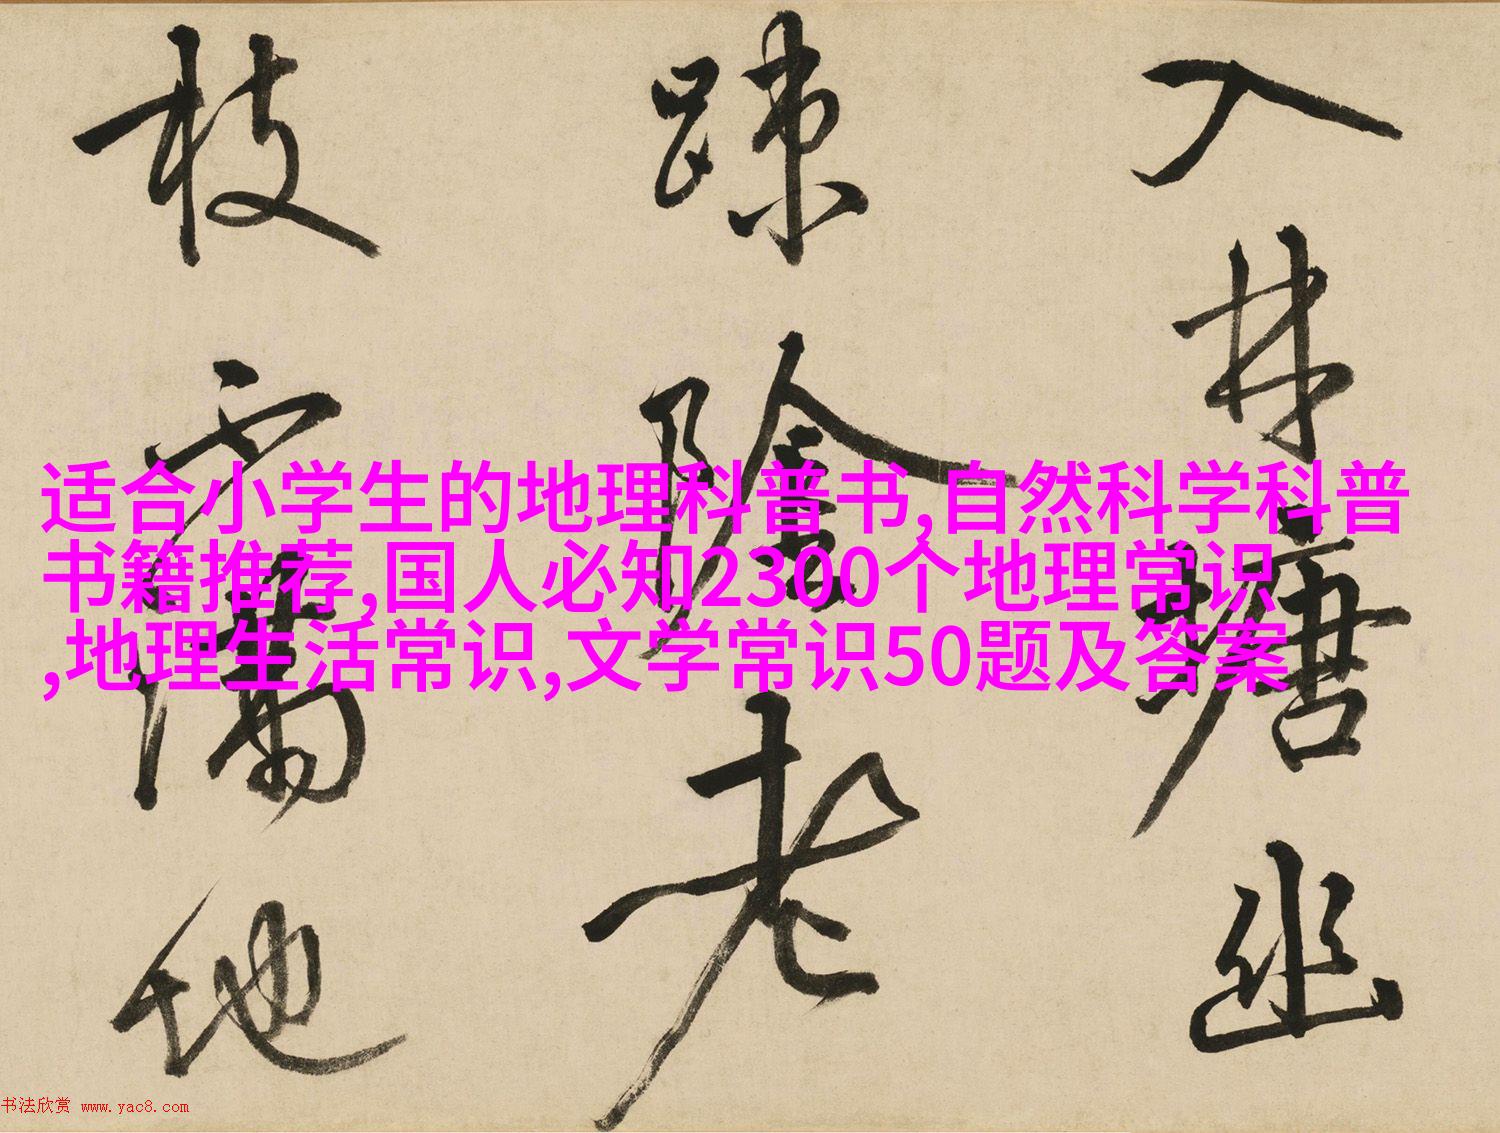 入林塘幽
疎陰老
枝滿地
适合小学生的地理科普书,自然科学科普
书籍推荐,国人必知2300个地理常识
,地理生活常识,文学常识50题及答案
书法欣赏 www.yac8.com